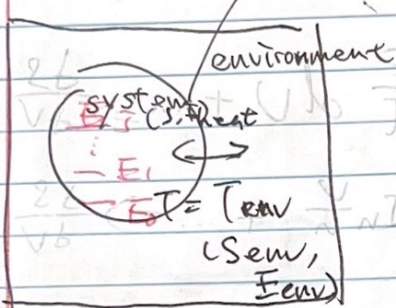 environment
system
(S, E) heat
E₁
E₀ T = Tenv
(Senv,
Eenv)